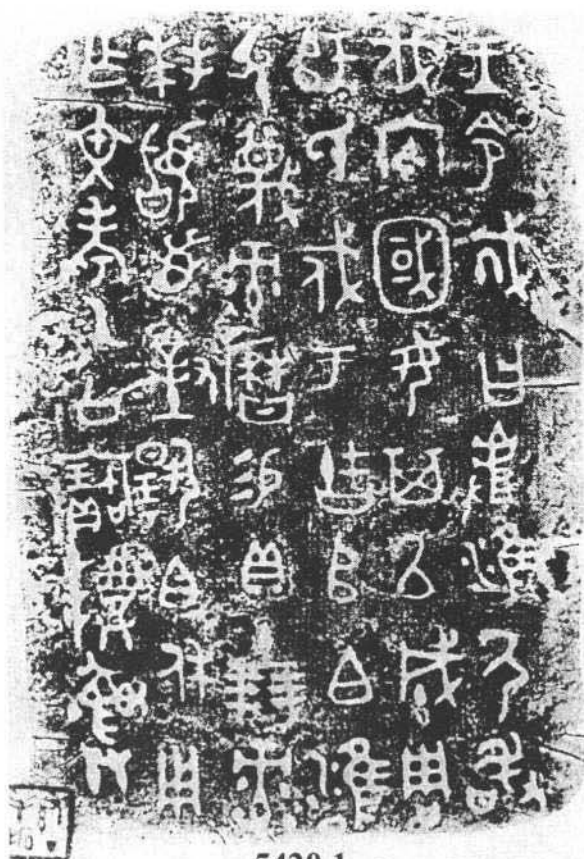 王令𢦚曰𠭯淮尸敢
伐内國女其以成周
師氏戍于古𠂤白雝
父蔑彔曆易貝十朋彔
拜𩒨首對揚白休用
乍文考乙公寶𬯚彝
5420-1